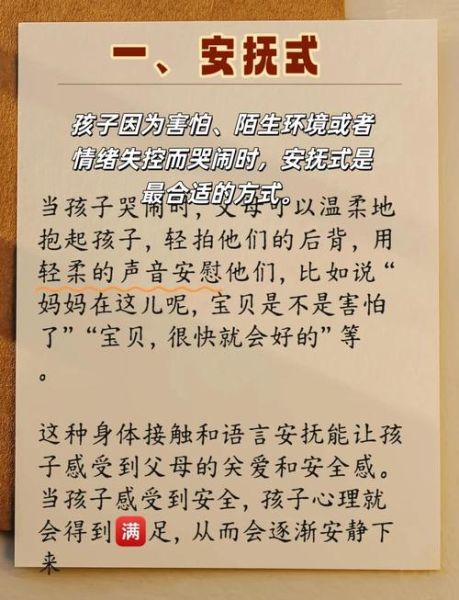 一、安抚式
孩子因为害怕、陌生环境或者
情绪失控而哭闹时，安抚式是
最合适的方式。
当孩子哭闹时，父母可以温柔地
抱起孩子，轻拍他们的后背，用
轻柔的声音安慰他们，比如说“
妈妈在这儿呢，宝贝是不是害怕
了”“宝贝，很快就会好的”等
。
这种身体接触和语言安抚能让孩
子感受到父母的关爱和安全感。
当孩子感受到安全，孩子心理就
会得到满足，从而会逐渐安静下
来